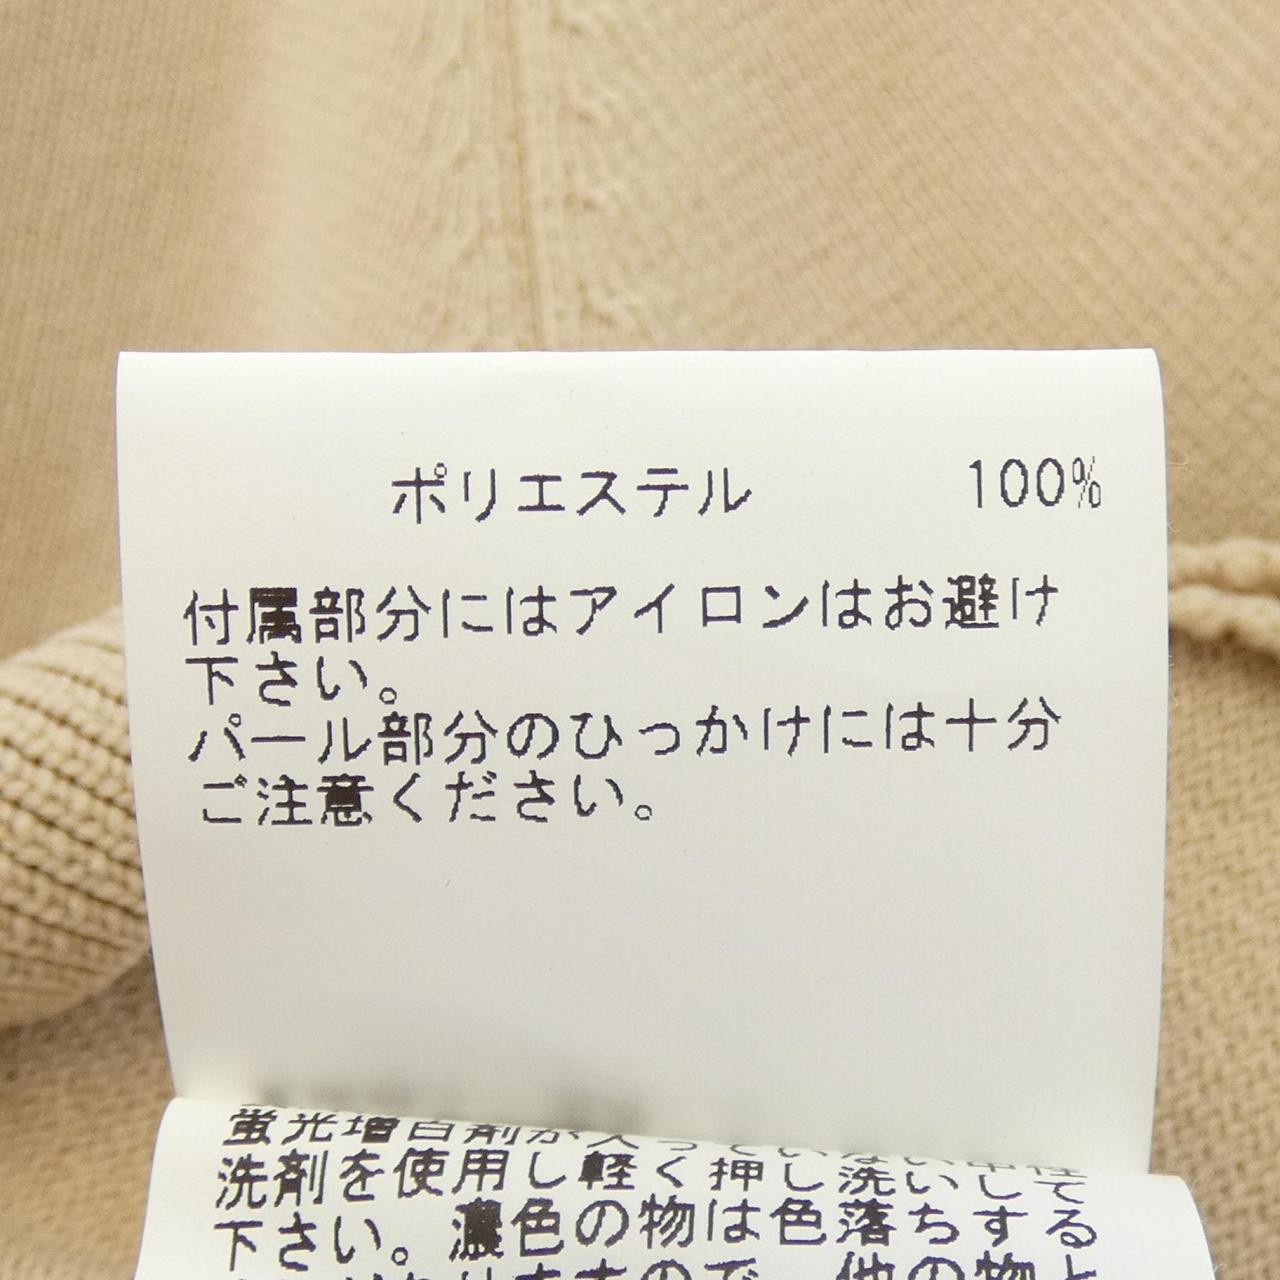 ポリエステル 100%
付属部分にはアイロンはお避け
下さい。
パール部分のひっかけには十分
ご注意ください。
蛍光増白剤が入っていない中性
洗剤を使用し軽く押し洗いして
下さい。濃色の物は色落ちすると
ので、他の物